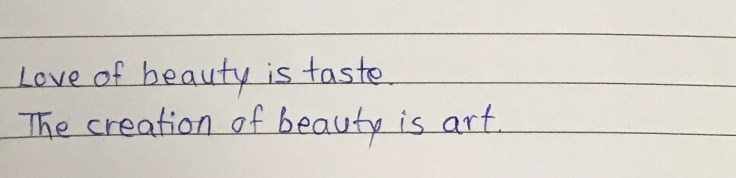 Love of beauty is taste.
The creation of beauty is art.